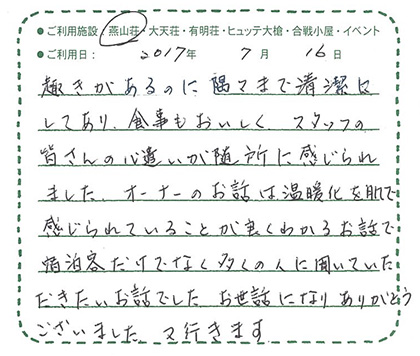 ●ご利用施設:燕山荘・大天荘・有明荘・ヒュッテ大槍・合戦小屋・イベント
●ご利用日: 2017年 7月 16日
趣きがあるのに隅々まで清潔に
してあり、食事もおいしく、スタッフの
皆さんの心遣いが随所に感じられ
ました。オーナーのお話は温暖化を肌で
感じられていることが良くわかるお話で
宿泊客だけでなく多くの人に聞いていた
だきたいお話でした お世話になりありがとう
ございました。又行きます